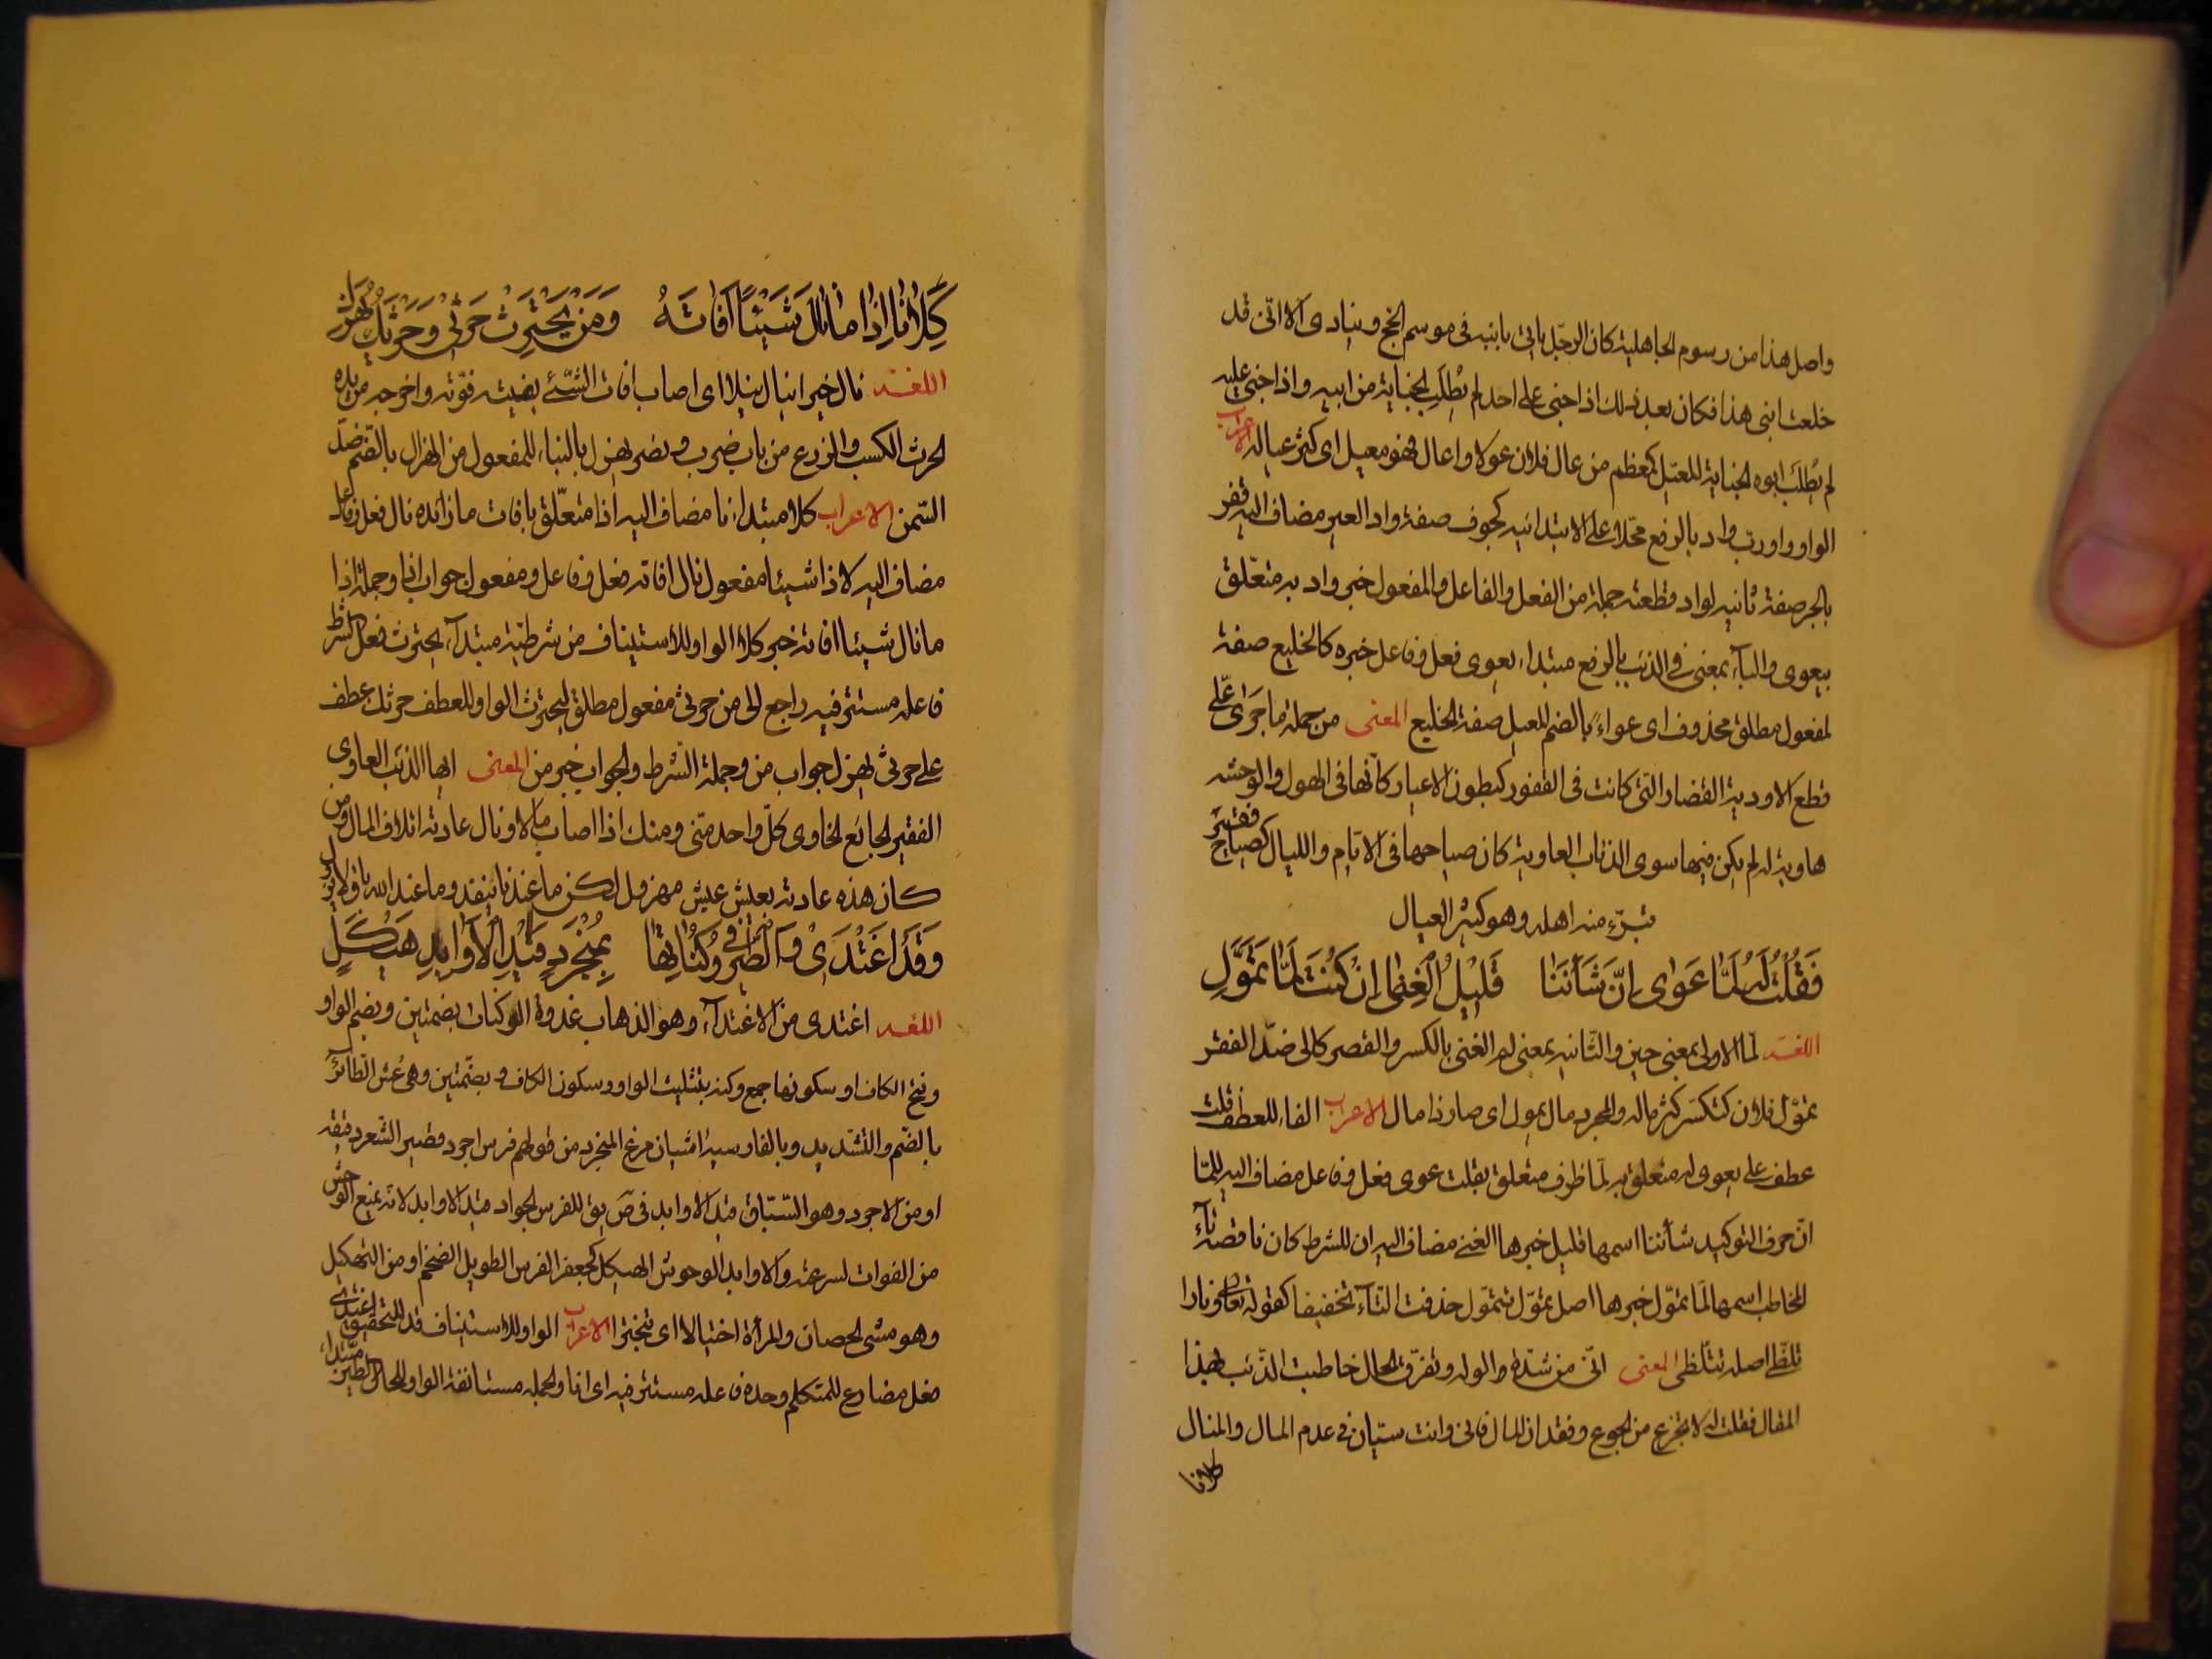 واصل هذا من رسوم الجاهلية كان الرجل ياتى بابنه فى موسم الحج وينادى الا انى قد
خلعت ابنى هذا فكان بعد ذلك اذا جنى على احد لم يُطلب الجناية من ابيه واذا جنى عليه
لم يُطلب ابوه الجناية المعيل كمعظم من عال فلان عولا واعال فهو معيل اى كثر عياله الاعراب
الواو واو رب واد بالرفع محلا على الابتدائيه كجوف صفة واد العير مضاف اليه قفر
بالجر صفة ثانيه لواد قطعته جملة من الفعل والفاعل والمفعول خبر واد به متعلق
بيعوى والباء بمعنى فى الذئب بالرفع مبتداء يعوى فعل وفاعل خبره كالخليع صفة
لمفعول مطلق محذوف اى عواء بالضم المعيل صفة الخليع المعنى من جملة ما جرى على
قطع الاودية القضار التى كانت فى القفور كبطون الاعيار كانها فى الهول والوحشه
هاوية له لم يكن فيها سوى الذئاب العاوية كان صياحها فى الايام والليال كصياح فقير
تبرء منه اهله وهو كثير العيال
فَقُلْتُ لَهُ لَمَّا عَوَى اِنَّ شَأْنَنَا قَلِيْلُ الْغِنٰى اِنْ كُنْتَ لَمَّا تَمَوَّلِ
اللغة لما الاولى بمعنى حين والثانيه بمعنى لم الغنى بالكسر والقصر كالى ضد الفقر
تموّل فلان كتكسّر كثر ماله والمجرد مال يمول اى صار ذا مال الاعراب الفاء للعطف قلت
عطف على يعوى له متعلق به لما ظرف متعلق بقلت عوى فعل وفاعل مضاف اليه للمّا
انّ حرف التوكيد شأننا اسمها قليل خبرها الغنى مضاف اليه ان للشرط كان ناقصة تاء
المخاطب اسمها لمّا تموّل خبرها اصل تموّل تتموّل حذفت التاء تخفيفا كقوله تعالى نارا
تلظّى اصله تتلظى المعنى انّى من شدّة الوله وتفرّق الحال خاطبت الذئب بهذا
المقال فقلت له لا تجزع من الجوع وفقدان المال فانى وانت سيّان فى عدم المال والمنال
كلانا
كِلَانَا اِذَا مَا نَالَ شَيْئًا اَفَاتَهُ وَمَنْ يَحْتَرِثْ حَرْثِى وَحَرْثَكَ يُهْزَلِ
اللغة نال خيرا ينال نيلا اى اصاب افات الشئ يفيته فوّته واخرجه من يده
الحرث الكسب والزرع من باب ضرب ونصر يهزل بالبناء للمفعول من الهزال بالضم ضدّ
السّمن الاعراب كلا مبتداء نا مضاف اليه اذا متعلّق بافات ما زائده نال فعل وفاعل
مضاف اليه لاذا شيئا مفعول نال افاته فعل وفاعل ومفعول جواب اذا وجملة اذا
ما نال شيئا افاته خبر كلا الواو للاستيناف من شرطيّة مبتداء يحترث فعل الشرط
فاعله مستتر فيه راجع الى من حرثى مفعول مطلق ليحترث الواو للعطف حرثك عطف
على حرثى يهزل جواب من وجملة الشرط والجواب خبر من المعنى ايها الذئب العاوى
الفقير الجائع الخاوى كلّ واحد منّى ومنك اذا اصاب مالا ونال عادته اتلاف المال ومن
كان هذه عادته يعيش عيش مهزول لكن ما عندنا ينفد وما عند الله باق لا يزول
وَقَدْ اَغْتَدِىْ وَالطَّيْرُ فِى وُكُنَاتِهَا بِمُنْجَرِدٍ قَيْدِ الْاَوَابِدِ هَيْكَلِ
اللغة اغتدى من الاغتداء وهو الذهاب غدوة الوكنات بضمتين وبضم الواو
وفتح الكاف او سكونها جمع وكنه بتثليث الواو وسكون الكاف وبضمّتين وهى عُش الطائر
بالضّم والتشديد وبالفارسية اشيان مرغ المنجرد من قولهم فرس اجرد قصير الشعر دقيقه
او من الاجرد وهو السّباق قيد الاوابد فى ص يق للفرس الجواد قيد الاوابد لانه يمنع الوحش
من الفوات لسرعته والاوابد الوحوش الهيكل كجعفر الفرس الطويل الضخم او من التهكيل
وهو مشى الحصان والمرأة اختيالا اى تبخترا الاعراب الواو للاستيناف قد للتحقيق اغتدى
فعل مضارع للمتكلم وحده فاعله مستتر فيه اى انا والجمله مستانفة الواو للحال الطير مبتداء